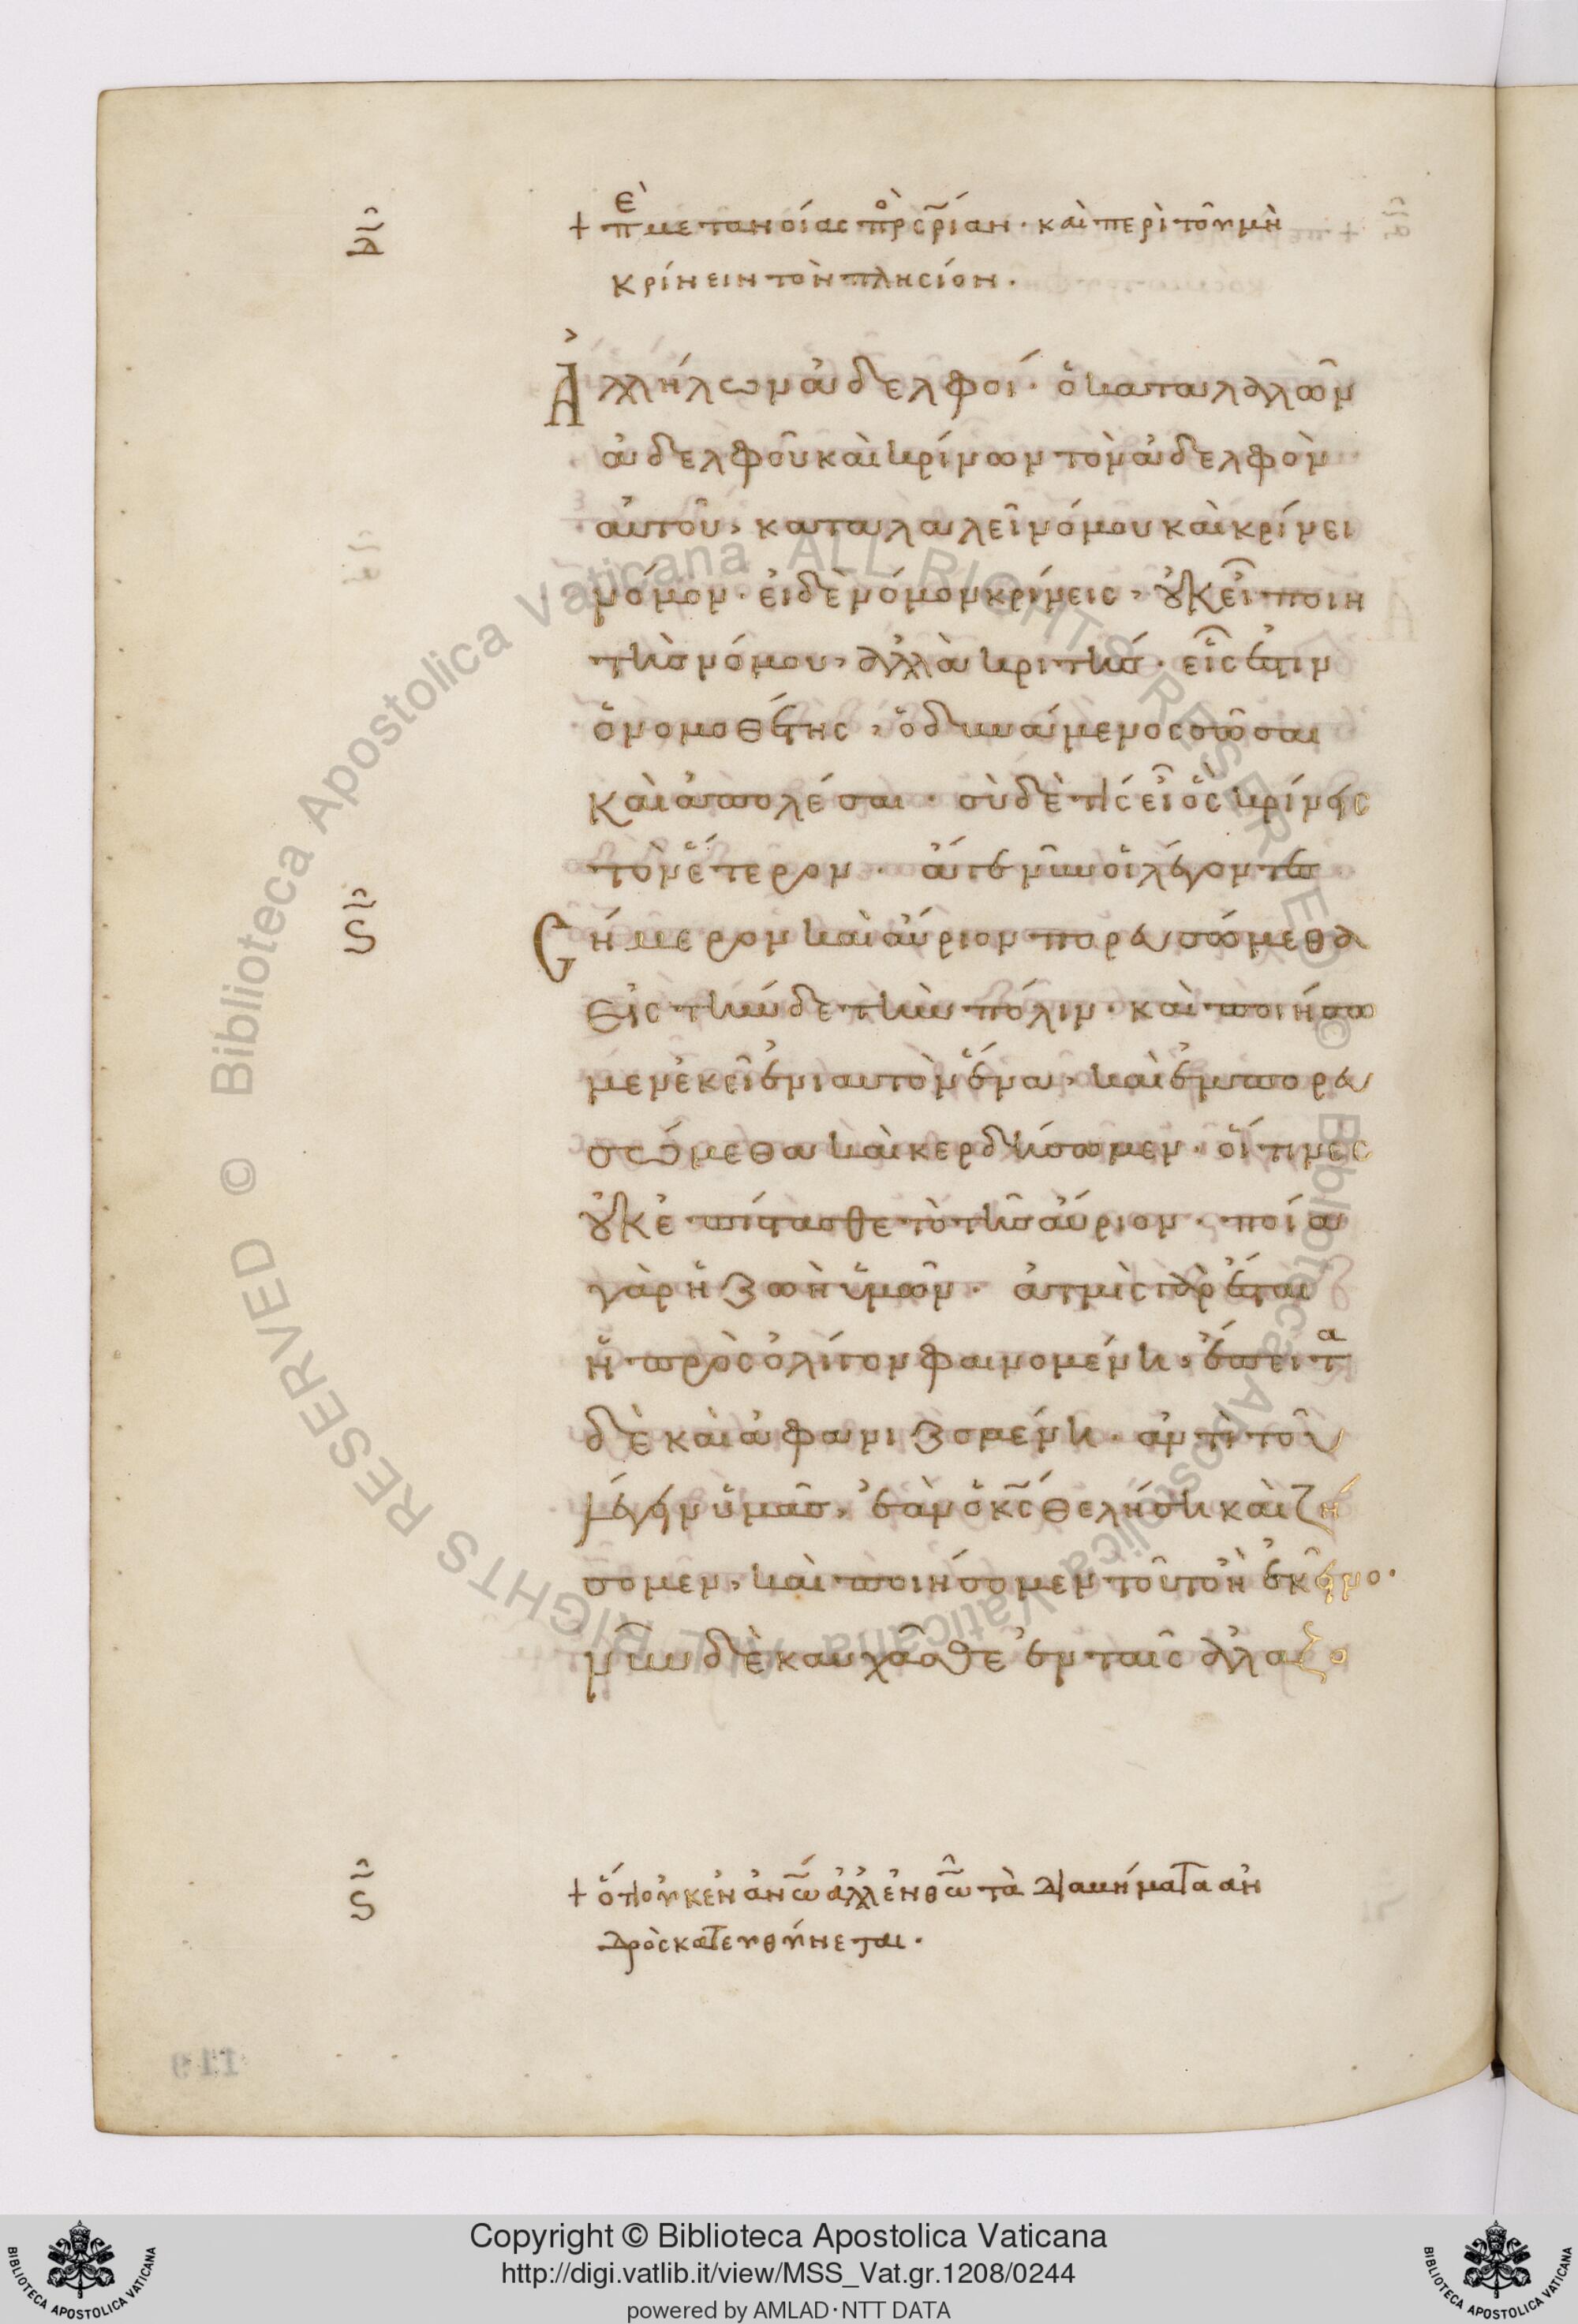 + πε μετανοίας πρὸς σ̅ρίαν· καὶ περὶ τοῦ μὴ
κρίνειν τὸν πλησίον·
Ἀλλήλων ἀδελφοί· ὁ καταλαλῶν
ἀδελφοῦ καὶ κρίνων τὸν ἀδελφὸν
αὐτοῦ, καταλαλεῖ νόμου καὶ κρίνει
νόμον· εἰ δὲ νόμον κρίνεις, οὐκ εἶ ποιη
τὴς νόμου, ἀλλὰ κριτής· εἷς ἐστιν
ὁ νομοθέτης, ὁ δυνάμενος σῶσαι
καὶ ἀπολέσαι· σὺ δὲ τίς εἶ ὃς κρίνεις
τὸν ἕτερον· ἄγε νῦν οἱ λέγοντες
Σήμερον καὶ αὔριον πορευσώμεθα
εἰς τήνδε τὴν πόλιν· καὶ ποιήσω
μεν ἐκεῖ ἐνιαυτὸν ἕνα, καὶ ἐμπορευ
σώμεθα καὶ κερδήσωμεν· οἵτινες
οὐκ ἐπίστασθε τὸ τῆς αὔριον· ποία
γὰρ ἡ ζωὴ ὑμῶν· ἀτμὶς γὰρ ἔσται
ἡ πρὸς ὀλίγον φαινομένη, ἔπειτα
δὲ καὶ ἀφανιζομένη· ἀντὶ τοῦ
λέγειν ὑμᾶς, ἐὰν ὁ κ̅ς θελήση καὶ ζή
σομεν, καὶ ποιήσομεν τοῦτο ἢ ἐκεῖνο·
νῦν δὲ καυχᾶσθε ἐν ταῖς ἀλαζο
+ ὅτι οὐκ ἐν ἀν̅ω ἀλλ' ἐν θ̅ω τὰ διαβήματα ἀν
δρὸς κατευθύνεται·
119
Copyright © Biblioteca Apostolica Vaticana
http://digi.vatlib.it/view/MSS_Vat.gr.1208/0244
powered by AMLAD·NTT DATA